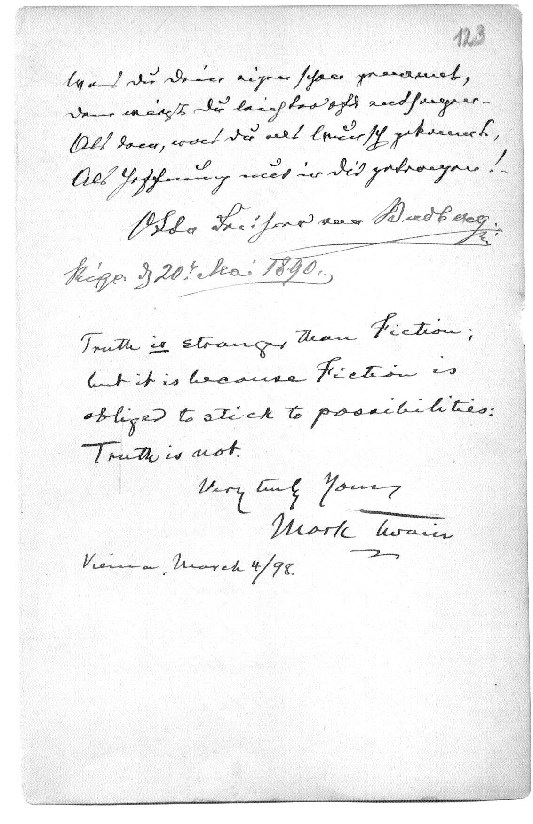 123
Was du dein eigen schon genannt,
du leichter oft
Als dem, was du als Wunsch gekannt,
Als Hoffnung nur in dir getragen!
Otto Freiherr von Budberg.
Riga d 20t Mai 1890.
Truth is stranger than Fiction;
but it is because Fiction is
obliged to stick to possibilities:
Truth is not.
Very truly Yours
Mark Twain
Vienna, March 4/98.